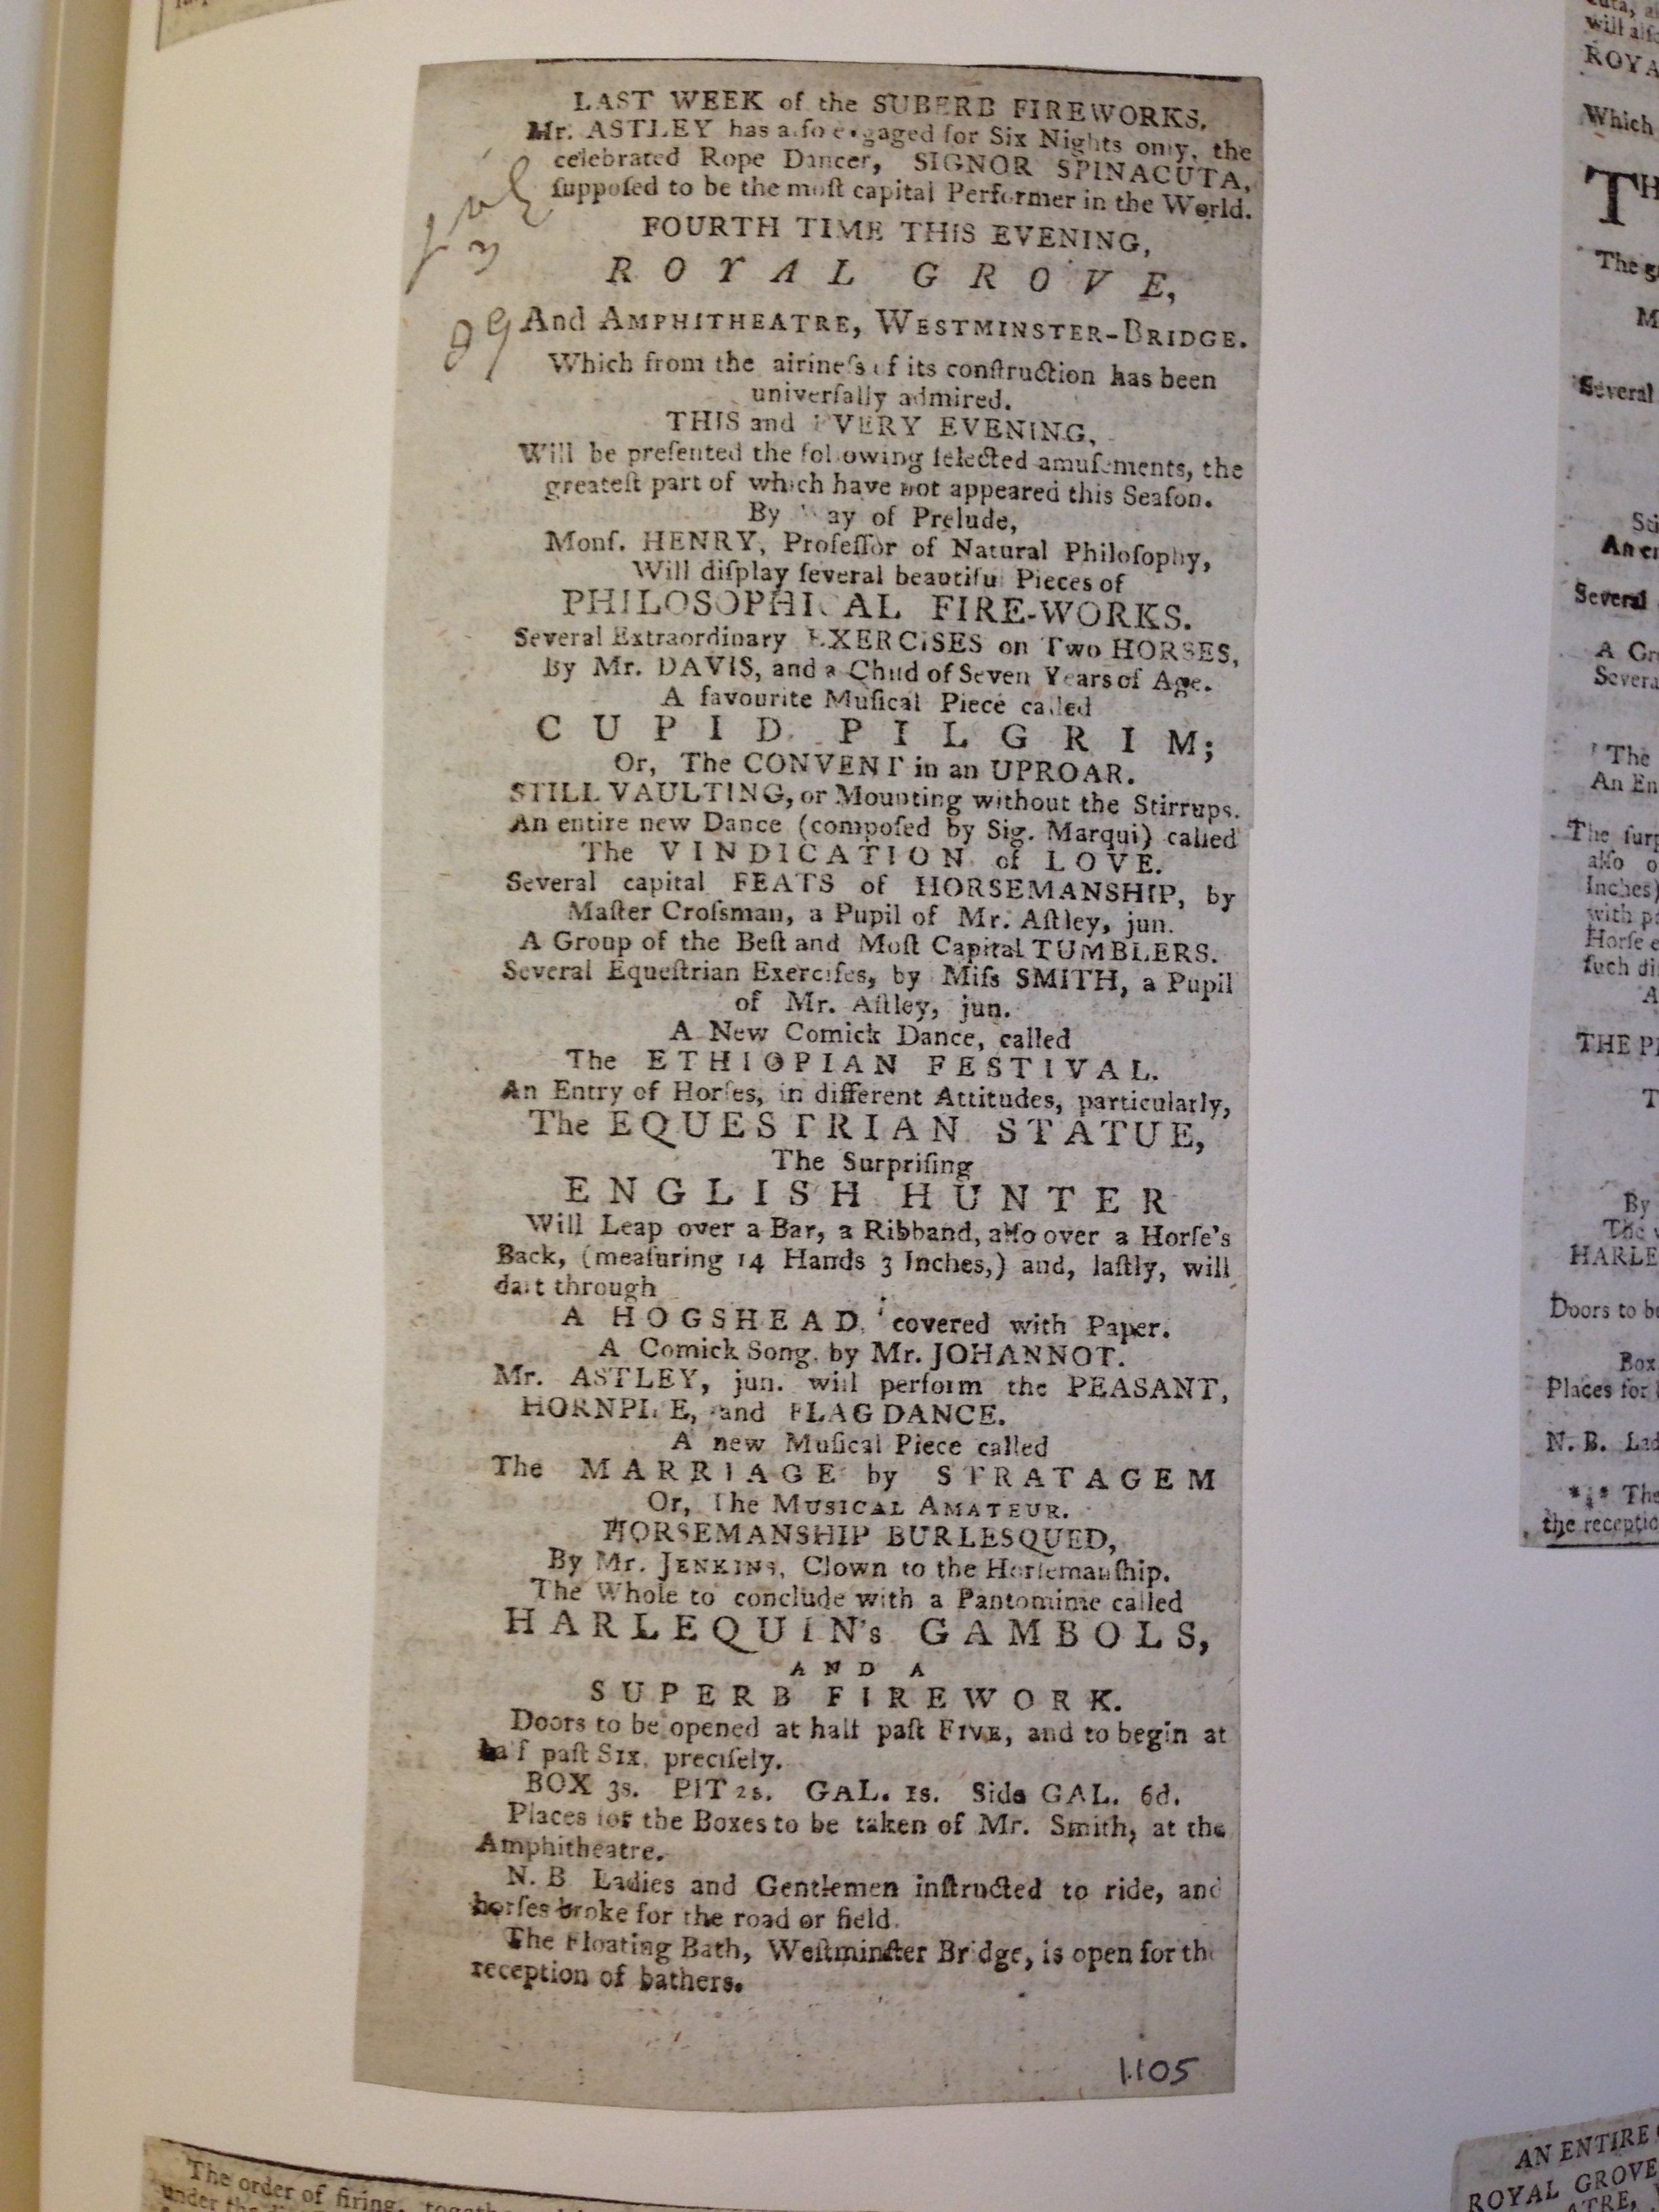 LAST WEEK of the SUBERB FIREWORKS.
Mr. ASTLEY has alſo engaged for Six Nights only, the
celebrated Rope Dancer, SIGNOR SPINACUTA,
ſuppoſed to be the moſt capital Performer in the World.
FOURTH TIME THIS EVENING,
ROYAL GROVE,
And AMPHITHEATRE, WESTMINSTER-BRIDGE.
Which from the airineſs of its conſtruction has been
univerſally admired.
THIS and EVERY EVENING,
Will be preſented the following ſelected amuſements, the
greateſt part of which have not appeared this Seaſon.
By Way of Prelude,
Monſ. HENRY, Profeſſor of Natural Philoſophy,
Will diſplay ſeveral beautiful Pieces of
PHILOSOPHICAL FIRE-WORKS.
Several Extraordinary EXERCISES on Two HORSES,
By Mr. DAVIS, and a Child of Seven Years of Age.
A favourite Muſical Piece called
CUPID PILGRIM;
Or, The CONVENT in an UPROAR.
STILL VAULTING, or Mounting without the Stirrups.
An entire new Dance (compoſed by Sig. Marqui) called
The VINDICATION of LOVE.
Several capital FEATS of HORSEMANSHIP, by
Maſter Croſsman, a Pupil of Mr. Aſtley, jun.
A Group of the Beſt and Moſt Capital TUMBLERS.
Several Equeſtrian Exerciſes, by Miſs SMITH, a Pupil
of Mr. Aſtley, jun.
A New Comick Dance, called
The ETHIOPIAN FESTIVAL.
An Entry of Horſes, in different Attitudes, particularly,
The EQUESTRIAN STATUE,
The Surpriſing
ENGLISH HUNTER
Will Leap over a Bar, a Ribband, alſo over a Horſe's
Back, (meaſuring 14 Hands 3 Inches,) and, laſtly, will
dart through
A HOGSHEAD, covered with Paper.
A Comick Song, by Mr. JOHANNOT.
Mr. ASTLEY, jun. will perform the PEASANT,
HORNPIPE, and FLAG DANCE.
A new Muſical Piece called
The MARRIAGE by STRATAGEM
Or, The MUSICAL AMATEUR.
HORSEMANSHIP BURLESQUED,
By Mr. JENKINS, Clown to the Horſemanſhip.
The Whole to conclude with a Pantomime called
HARLEQUIN's GAMBOLS,
AND A
SUPERB FIREWORK.
Doors to be opened at half paſt FIVE, and to begin at
half paſt SIX, preciſely.
BOX 3s. PIT 2s. GAL. 1s. Side GAL. 6d.
Places for the Boxes to be taken of Mr. Smith, at the
Amphitheatre.
N. B. Ladies and Gentlemen inſtructed to ride, and
horſes broke for the road or field.
The Floating Bath, Weſtminſter Bridge, is open for the
reception of bathers.
1105
The order of firing,
under the
will
ROYA
Which
TH
The
Several
Several
A
Severa
The
An En
The ſurp
alſo o
Inches)
with
Horſe
ſuch
THE
By
The
HARLE
Doors to
Box
Places for
N. B. Lad
*⁎* The
the receptio
AN ENTIRE
ROYAL GROVE